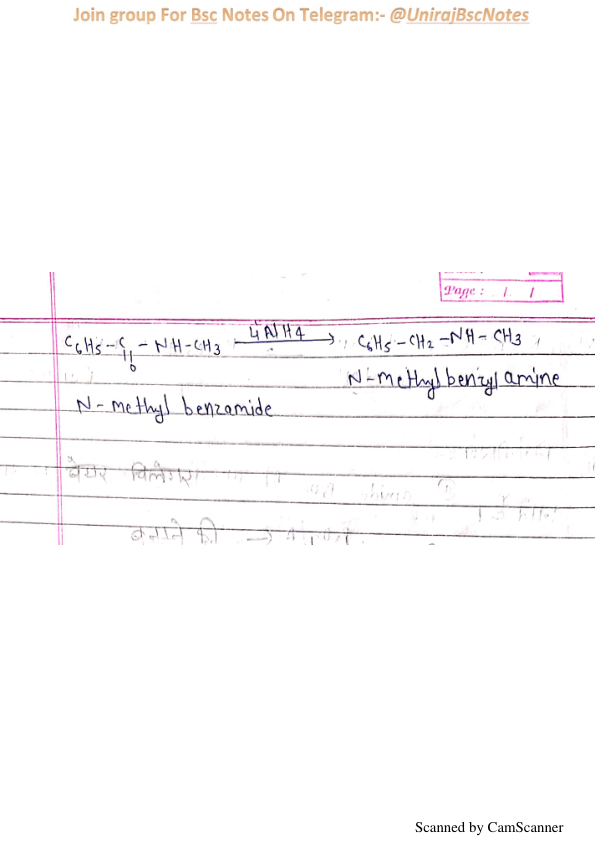 Join group For Bsc Notes On Telegram:- @UnirajBscNotes
Page : / /
C6H5-C-NH-CH3 LiAlH4 → C6H5-CH2-NH-CH3
||
O
N-methyl benzyl amine
N-methyl benzamide
बनाने की →
Scanned by CamScanner